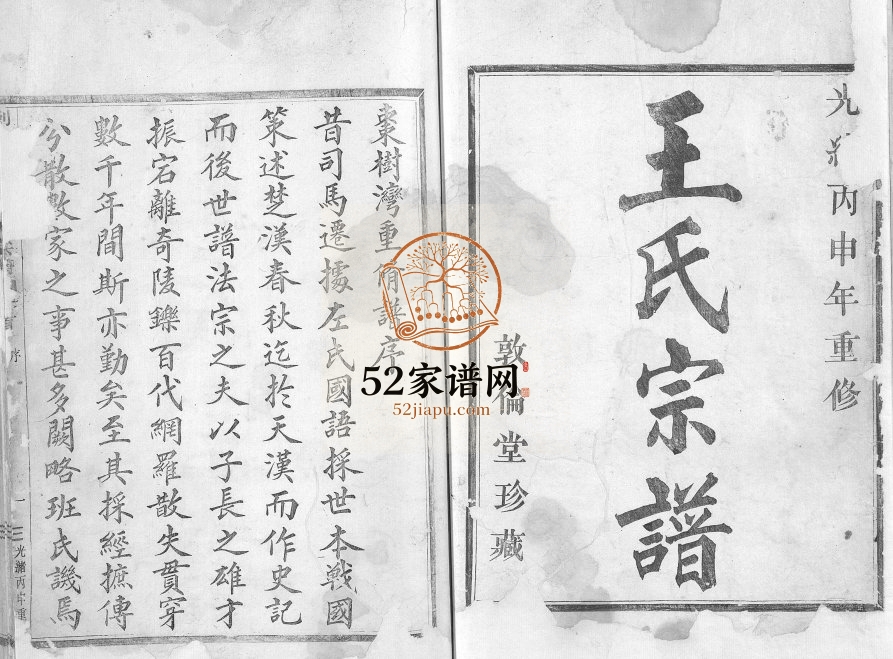 光緒丙申年重修
王氏宗譜
敦倫堂珍藏
棗樹灣重脩譜序
昔司馬遷據左氏國語採世本戰國
策述楚漢春秋迄於天漢而作史記
而後世譜法宗之夫以子長之雄才
振宕離奇陵鑠百代網羅散失貫穿
數千年間斯亦勤矣至其採經摭傳
分散數家之事甚多闕略班氏譏焉
序
一
光緒丙申重
52家谱网
52jiapu.com